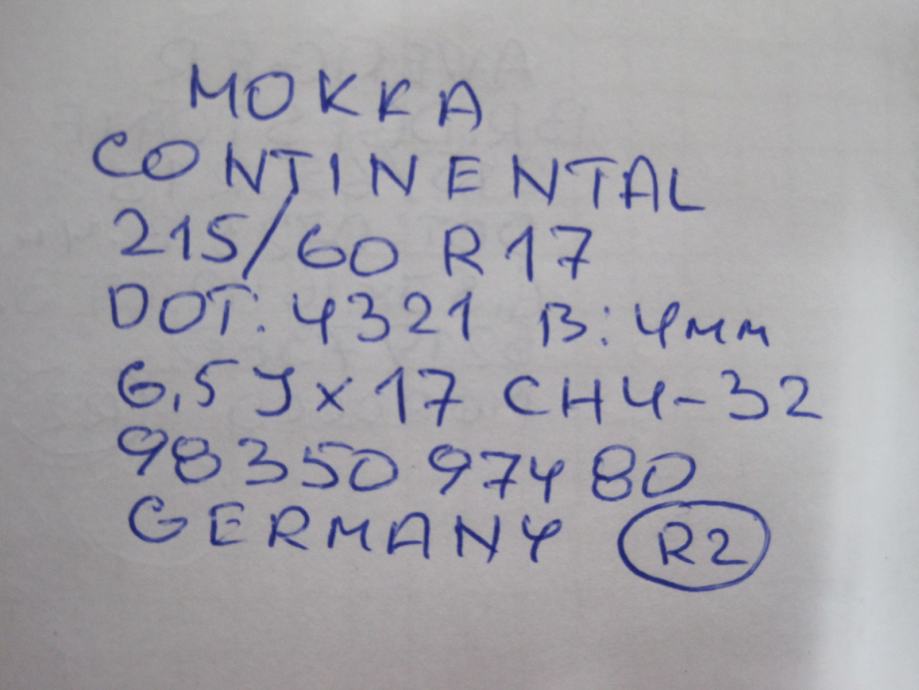 MOKKA
CONTINENTAL
215/60 R17
DOT: 4321 B: 4mm
6,5J x 17 CH4-32
98350 974 80
GERMANY R2